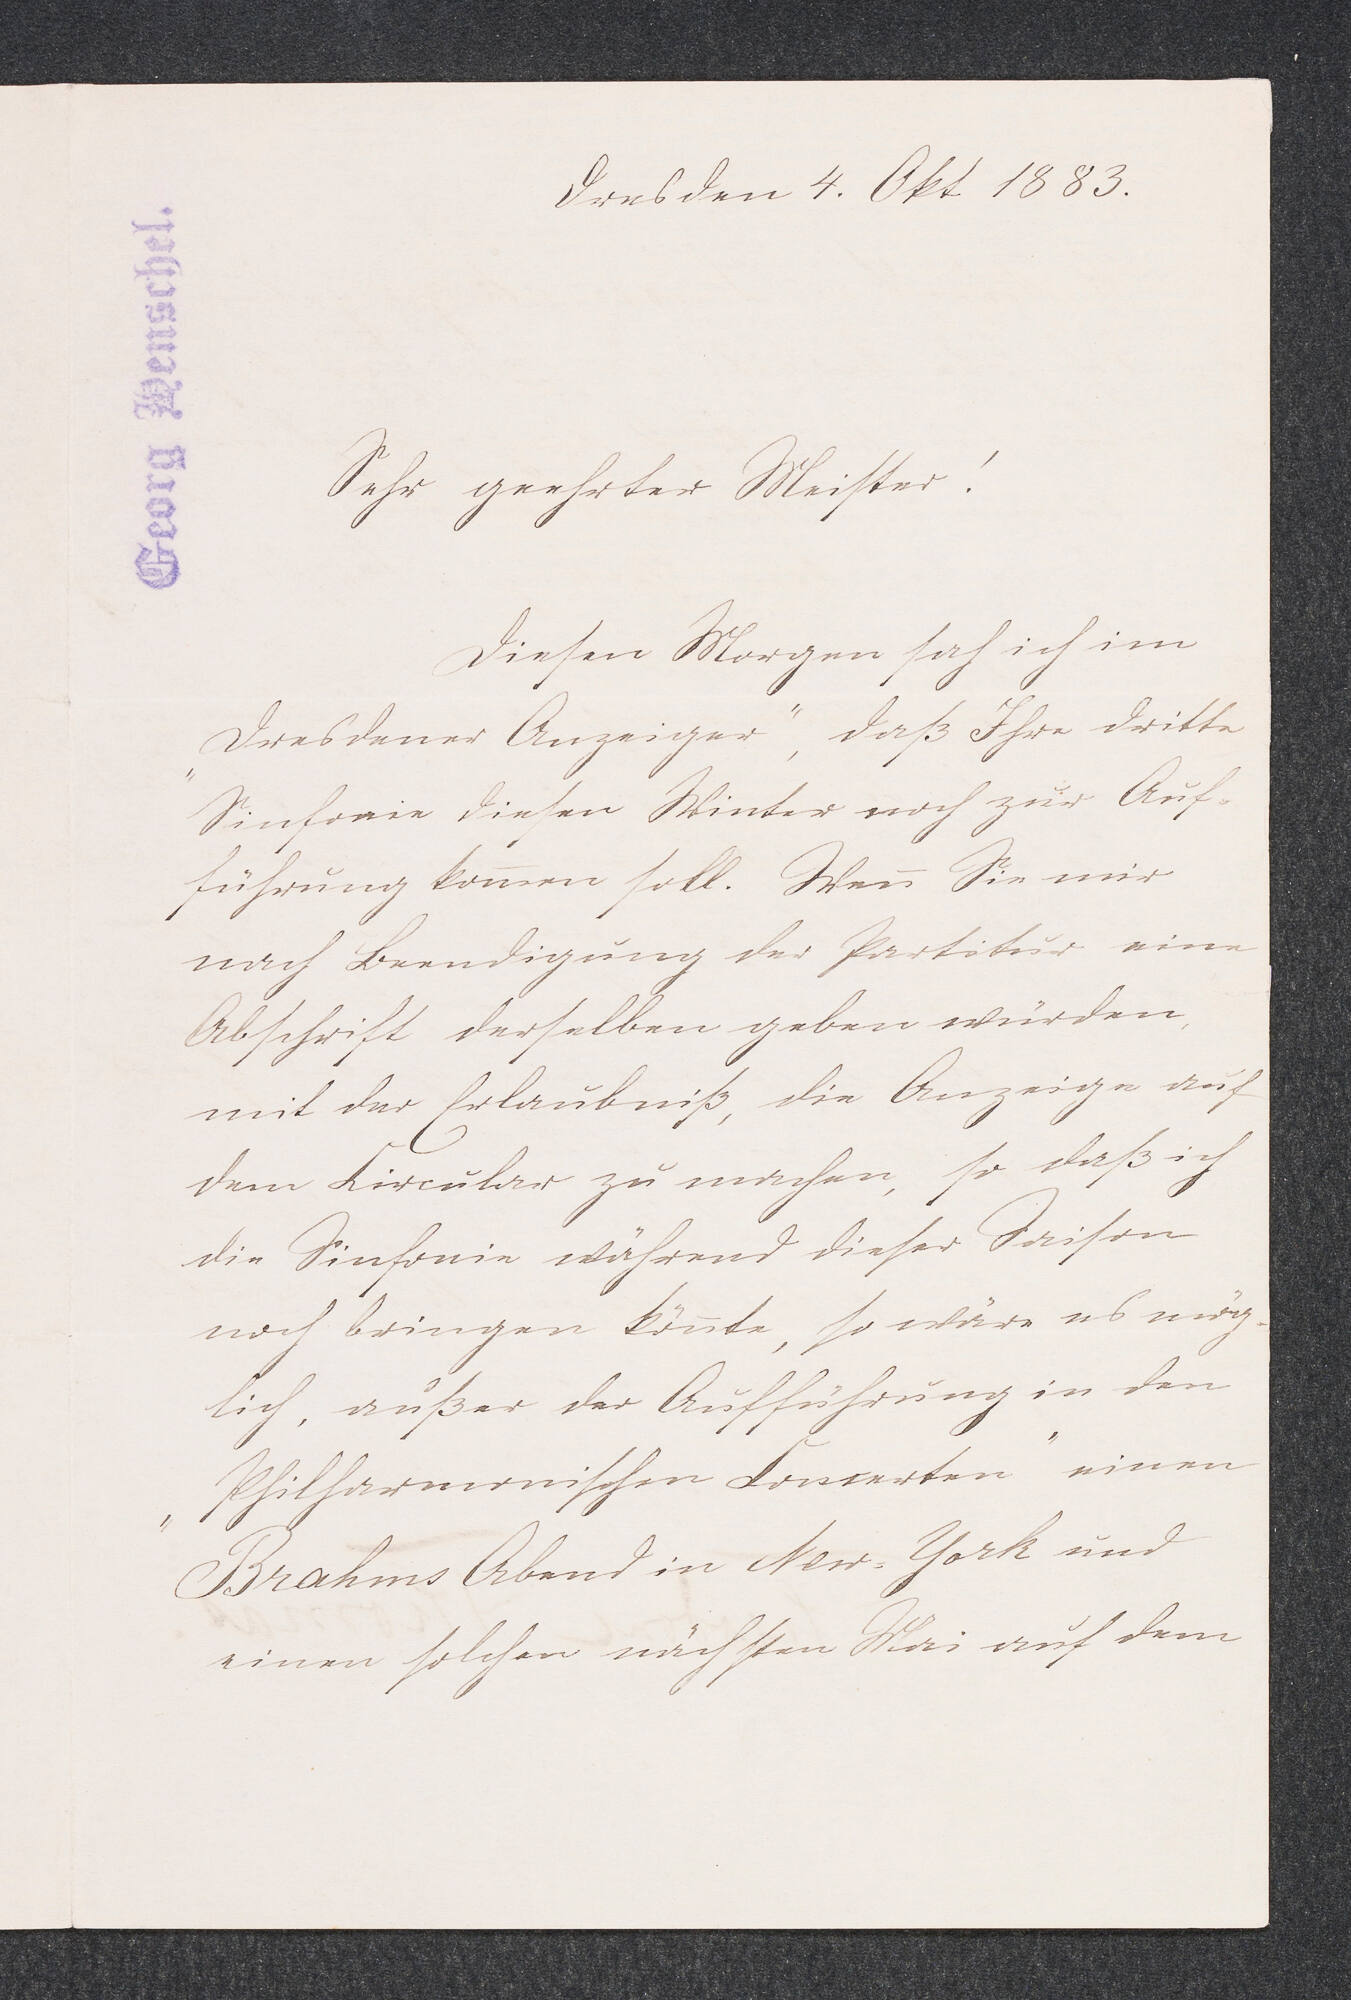 Georg Henschel.
Dresden 4. Okt 1883.
Sehr geehrter Meister!
Diesen Morgen sah ich im
„Dresdener Anzeiger“, daß Ihre dritte
Sinfonie diesen Winter noch zur Auf-
führung kom̄en soll. Wen̄ Sie mir
nach Beendigung der Partitur eine
Abschrift derselben geben würden,
mit der Erlaubniß, die Anzeige auf
dem Circular zu machen, so daß ich
die Sinfonie während dieser Saison
noch bringen kön̄te, so wäre es mög-
lich, außer der Aufführung in den
„Philharmonischen Concerten“ einen
Brahms Abend in New-York und
einen solchen nächsten Mai auf dem